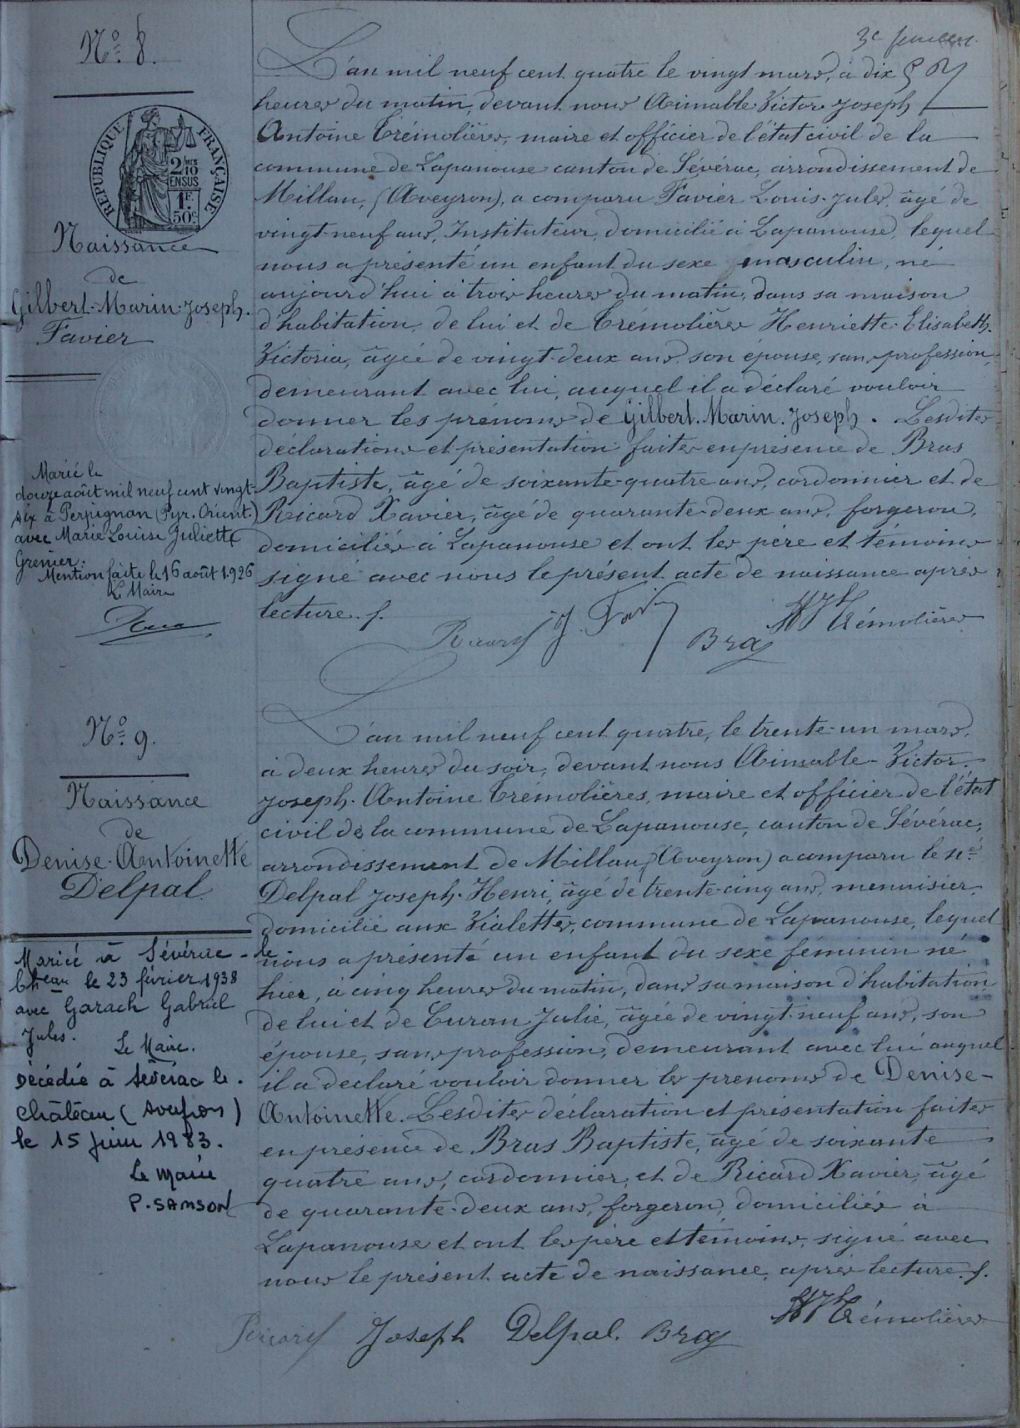 3e feuillet
N° 8.
RÉPUBLIQUE FRANÇAISE
2/10 EN SUS
1F.
50c
Naissance
de
Gilbert-Marin-Joseph.
Favier
Marié le
douze août mil neuf cent vingt-
six à Perpignan (Pyr. Orient.)
avec Marie Louise Juliette
Grenier.
Mention faite le 16 août 1926
Le Maire
L'an mil neuf cent quatre le vingt mars, à dix
heures du matin, devant nous Aimable Victor Joseph
Antoine Trémolières, maire et officier de l'état civil de la
commune de Lapanouse canton de Sévérac, arrondissement de
Millau, (Aveyron), a comparu Favier Louis-Jules, âgé de
vingt-neuf ans, Instituteur, domicilié à Lapanouse, lequel
nous a présenté un enfant du sexe masculin, né
aujourd'hui à trois heures du matin, dans sa maison
d'habitation, de lui et de Trémolières Henriette-Elisabeth-
Victoria, âgée de vingt-deux ans, son épouse, sans profession,
demeurant avec lui, auquel il a déclaré vouloir
donner les prénoms de Gilbert-Marin-Joseph. Lesdites
déclarations et présentation faites en présence de Bras
Baptiste, âgé de soixante-quatre ans, cordonnier et de
Ricard Xavier, âgé de quarante-deux ans, forgeron,
domiciliés à Lapanouse et ont les père et témoins
signé avec nous le présent acte de naissance après
lecture.
Ricard J. Favier Bras Trémolières
N° 9.
Naissance
de
Denise-Antoinette
Delpal.
Mariée à Sévérac-le-
Chteau le 23 février 1938
avec Garach Gabriel
Jules.
Le Maire.
Décédée à Sévérac le.
Château (Aveyron)
le 15 juin 1983.
Le Maire
P. SAMSON
L'an mil neuf cent quatre, le trente-un mars,
à deux heures du soir, devant nous Aimable-Victor-
Joseph-Antoine Trémolières, maire et officier de l'état
civil de la commune de Lapanouse, canton de Sévérac,
arrondissement de Millau, (Aveyron) a comparu le sr
Delpal Joseph-Henri, âgé de trente-cinq ans, menuisier,
domicilié aux Vialettes, commune de Lapanouse, lequel
nous a présenté un enfant du sexe féminin né
hier, à cinq heures du matin, dans sa maison d'habitation
de lui et de Curan Julie, âgée de vingt-neuf ans, son
épouse, sans profession, demeurant avec lui auquel
il a declaré vouloir donner les prenoms de Denise-
Antoinette. Lesdites déclaration et présentation faites
en présence de Bras Baptiste, âgé de soixante
quatre ans, cordonnier, et de Ricard Xavier, âgé
de quarante-deux ans, forgeron, domiciliés à
Lapanouse et ont les père et témoins, signé avec
nous le présent acte de naissance, après lecture.
Ricard Joseph Delpal. Bras Trémolières